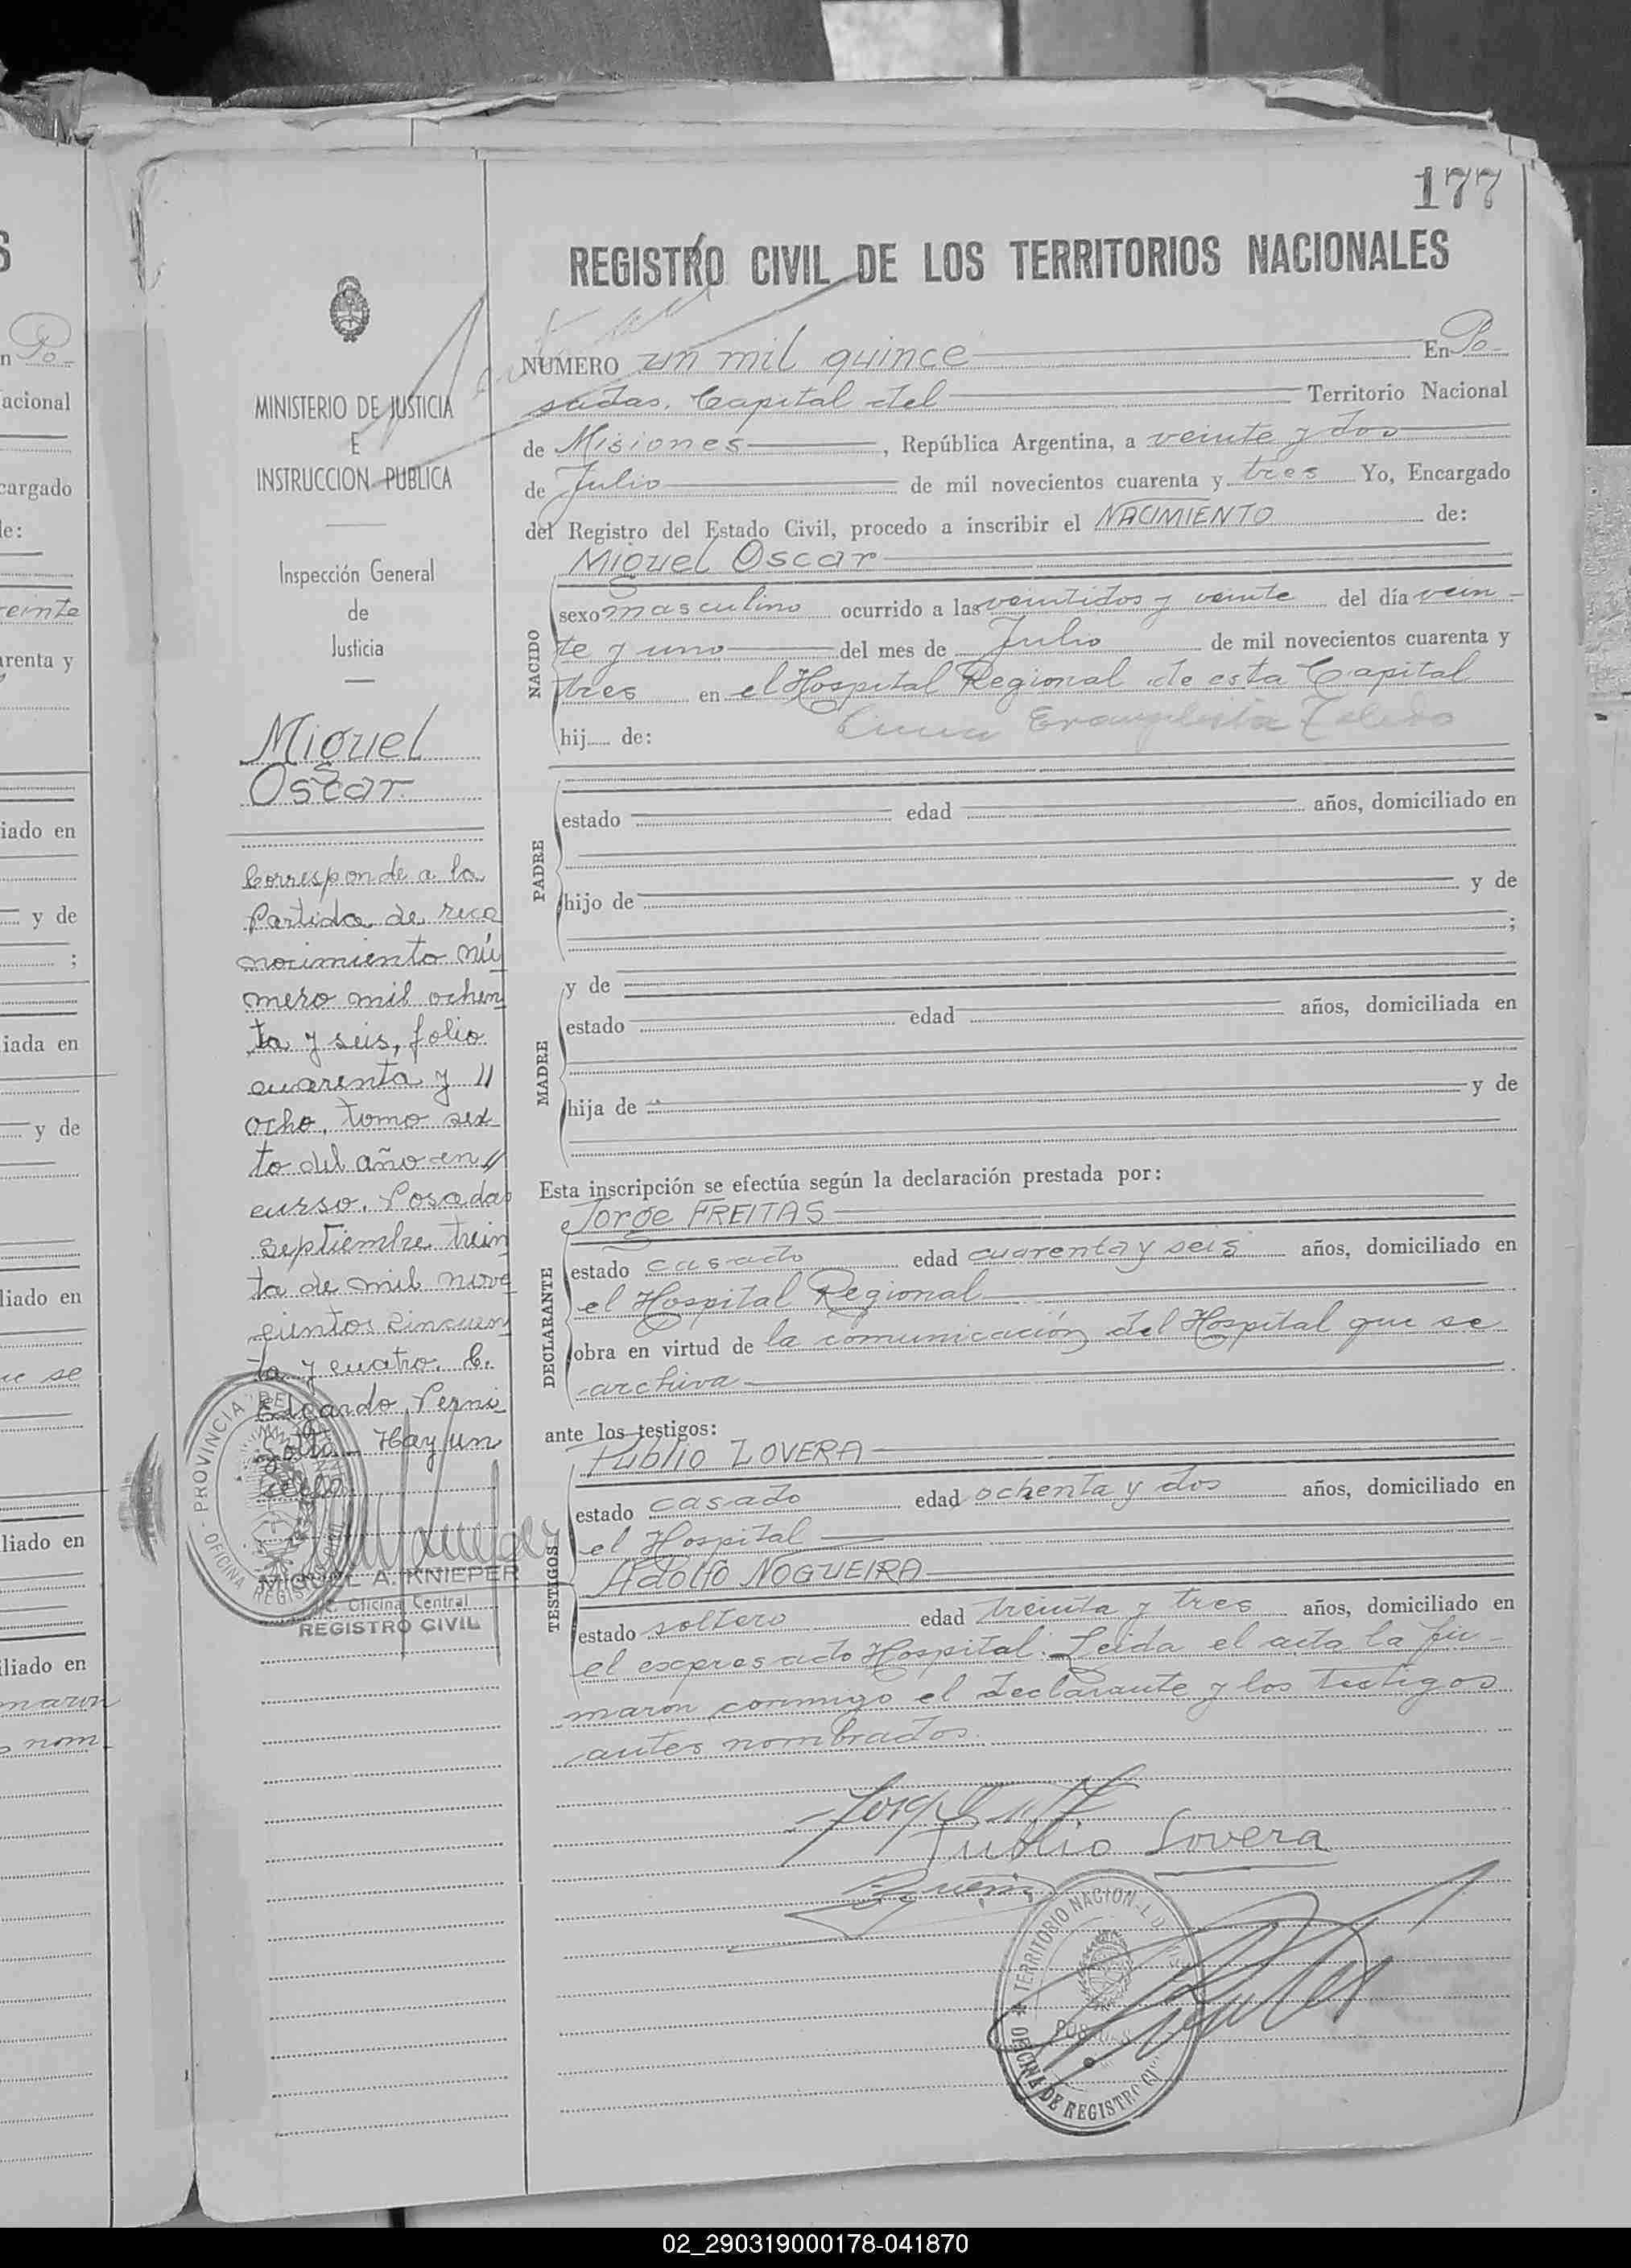 177
REGISTRO CIVIL DE LOS TERRITORIOS NACIONALES
NUMERO un mil quince En Po-
sadas, Capital del Territorio Nacional
de Misiones, República Argentina, a veinte y dos
de Julio de mil novecientos cuarenta y tres Yo, Encargado
del Registro del Estado Civil, procedo a inscribir el NACIMIENTO de:
Miguel Oscar
NACIDO
sexo masculino ocurrido a las veintidos y veinte del día vein-
te y uno del mes de Julio de mil novecientos cuarenta y
tres en el Hospital Regional de esta Capital
hij de: Evangelista Toledo
PADRE
estado edad años, domiciliado en
hijo de y de
;
MADRE
y de
estado edad años, domiciliada en
hija de y de
Esta inscripción se efectúa según la declaración prestada por:
Jorge FREITAS
DECLARANTE
estado casado edad cuarenta y seis años, domiciliado en
el Hospital Regional
obra en virtud de la comunicación del Hospital que se
archiva
ante los testigos:
Publio LOVERA
TESTIGOS
estado casado edad ochenta y dos años, domiciliado en
el Hospital
Adolfo NOGUEIRA
estado soltero edad treinta y tres años, domiciliado en
el expresado Hospital. Leida el acta la fir-
maron conmigo el declarante y los testigos
antes nombrados.
Publio Lovera
TERRITORIO NACION L D
POS S
OFICINA DE REGISTRO CI
MINISTERIO DE JUSTICIA
E
INSTRUCCION PUBLICA
Inspección General
de
Justicia
Miguel
Oscar
Corresponde a la
Partida de reco
nocimiento nú
mero mil ochen
ta y seis, folio
cuarenta y //
ocho, tomo sex
to del año en //
curso. Posadas
Septiembre trein
ta de mil nove
cientos cincuen
ta y cuatro. C.
Edgardo
Hay un
sello
PROVINCIA DE
OFICINA REGIS
MIGUEL A. KNIEPER
Oficina Central
REGISTRO CIVIL
S
n Po-
acional
cargado
de:
einte
arenta y
iado en
y de
;
iada en
y de
liado en
ue se
liado en
iliado en
maron
nom
02_290319000178-041870